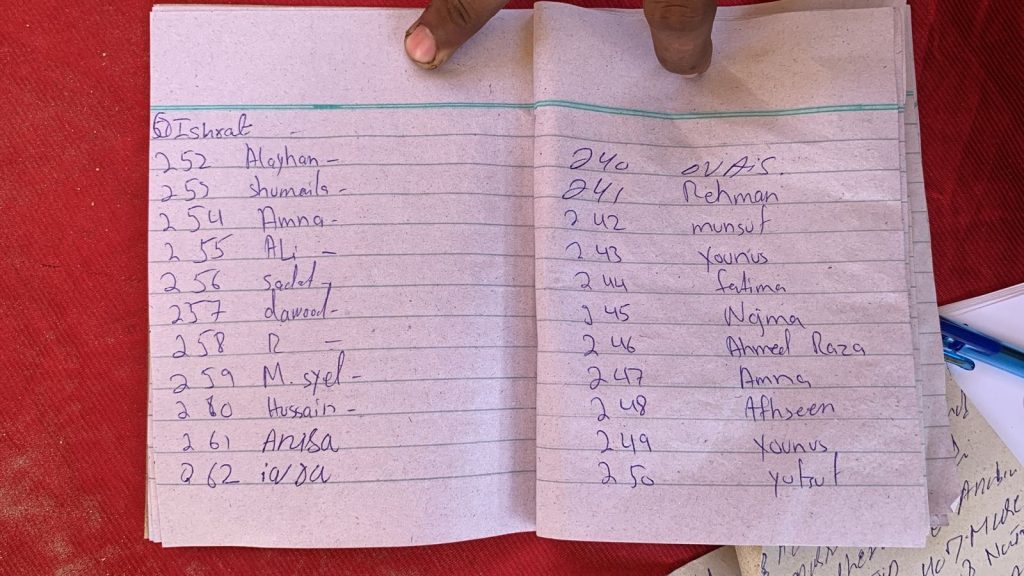 Ishrat
252 Alayhan -
253 Shumaila -
254 Amna -
255 ALi -
256 Sadat -
257 dawood -
258 R -
259 M. syel -
260 Hussain -
261
262
240 OVAiS.
241 Rehman
242 munsuf
243 Younus
244 fatima
245 Najma
246 Ahmed Raza
247 Amna
248 Afhseen
249 Younus
250 yufsuf